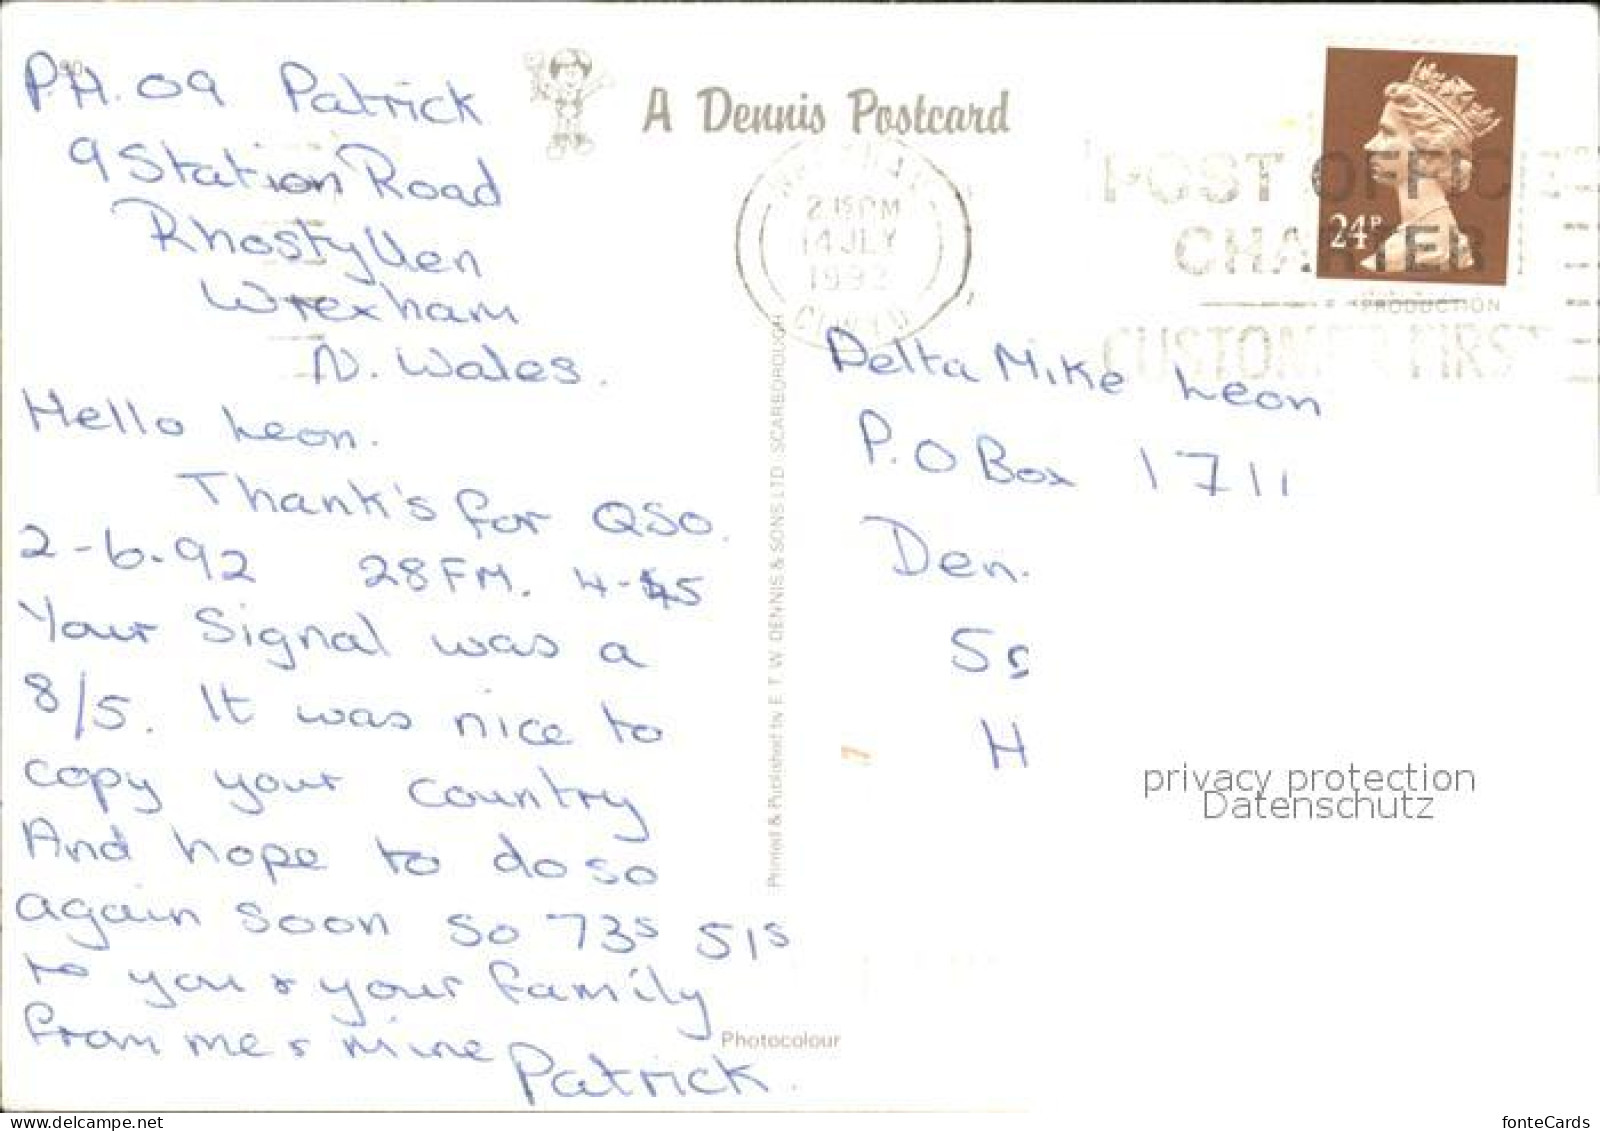 P.H. 09 Patrick
9 Station Road
Rhostyllen
Wrexham
N. Wales.
Hello Leon.
Thank's for QSO.
2-6-92 28FM. 4-45
Your Signal was a
8/5. It was nice to
copy your country
And hope to do so
again soon so 73s 51s
to you & your family
from me & mine
Patrick.
A Dennis Postcard
2 15 PM
14 JLY
1992
CLWYD
POST OFFICE
CHARTER
CUSTOMER FIRST
24P
PRODUCTION
Printed & Published by E. T. W. DENNIS & SONS LTD. SCARBOROUGH
Photocolour
Delta Mike Leon
P.O Box 1711
Den.
5
H
privacy protection
Datenschutz
fonteCards